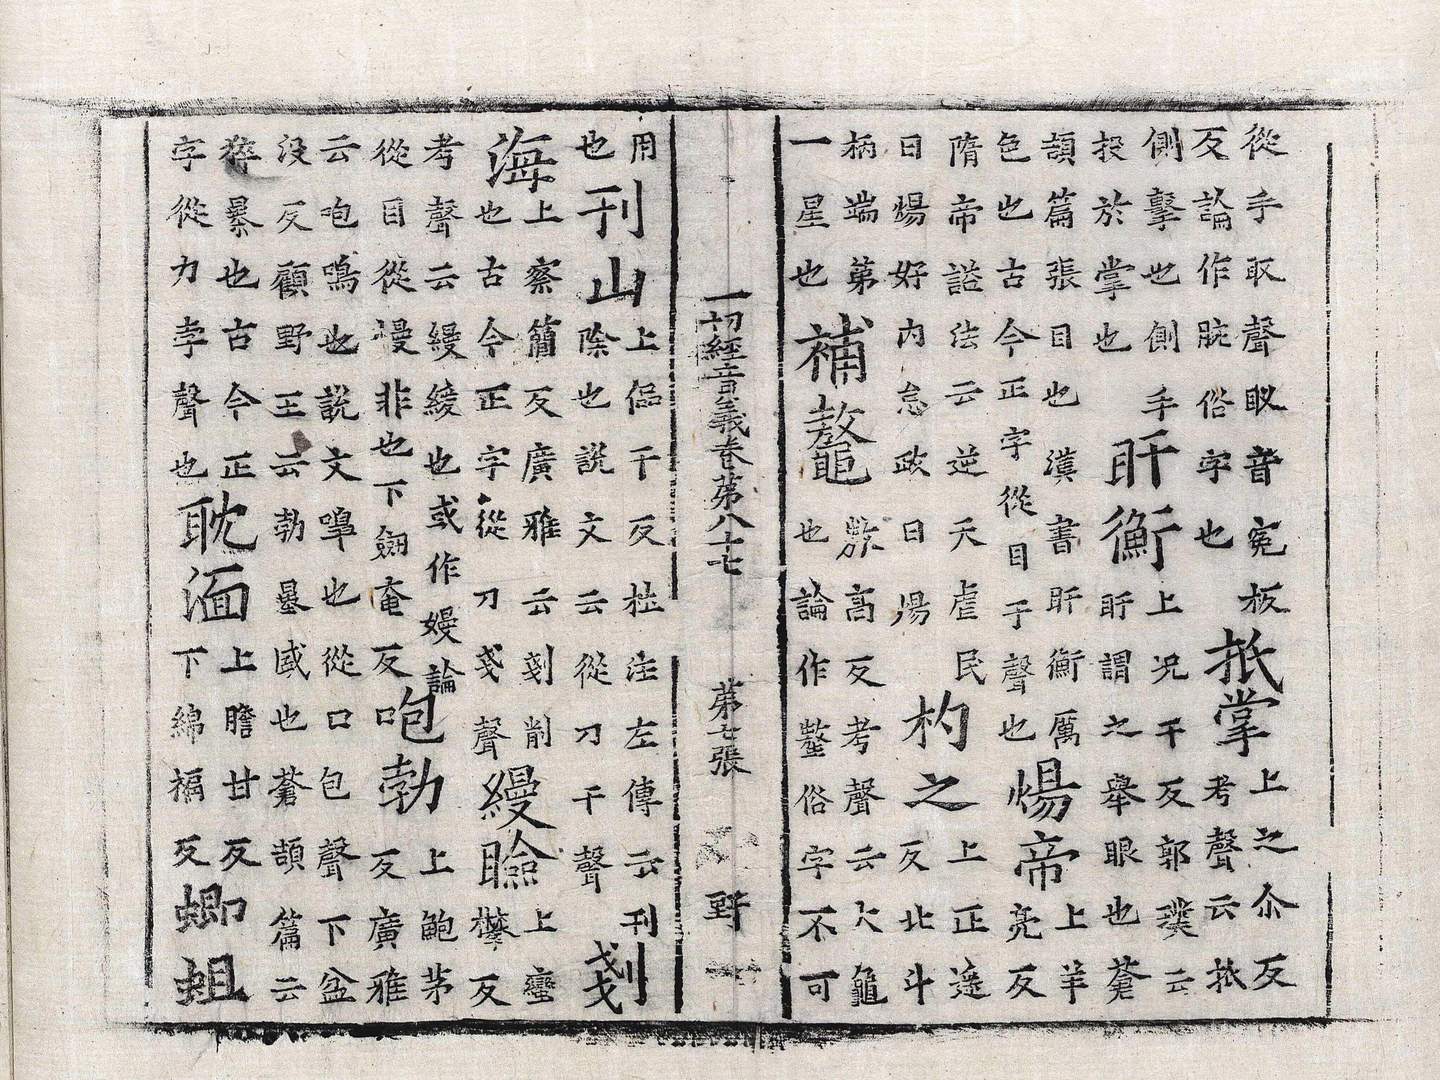 從手取聲聁音宛板反論作腕俗字也抵掌上之尒反考聲云抵
側擊也側手投於掌也盱衡上况于反郭璞云盱謂之舉眼也蒼
頡篇張目也漢書盱衡厲色也古今正字從目于聲也煬帝上羊亮反
隋帝謚法云逆天虐民曰煬好內怠政曰煬杓之上正遙反北斗
柄端第一星也補鼇敖高反考聲云大龜也論作鼇俗字不可
一切經音義卷第八十七 第七張 野
用也刊山上侃干反杜注左傳云刊除也說文云從刀干聲剗
海上察簡反廣雅云剗削也古今正字從刀戔聲縵瞼上蠻攀反
考聲云縵緩也或作嫚論從目從慢非也下劒奄反咆勃上鮑茅反廣雅
云咆鳴也說文嘷也從口包聲下盆沒反顧野王云勃暴威也蒼頡篇云
猝暴也古今正字從力孛聲也耽湎上膽甘反下綿褊反蝍蛆